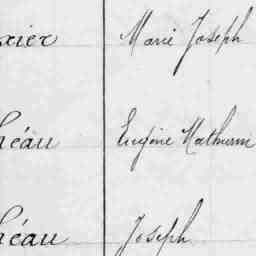 rier Marie Joseph
héau Eugène Mathurin
héau Joseph